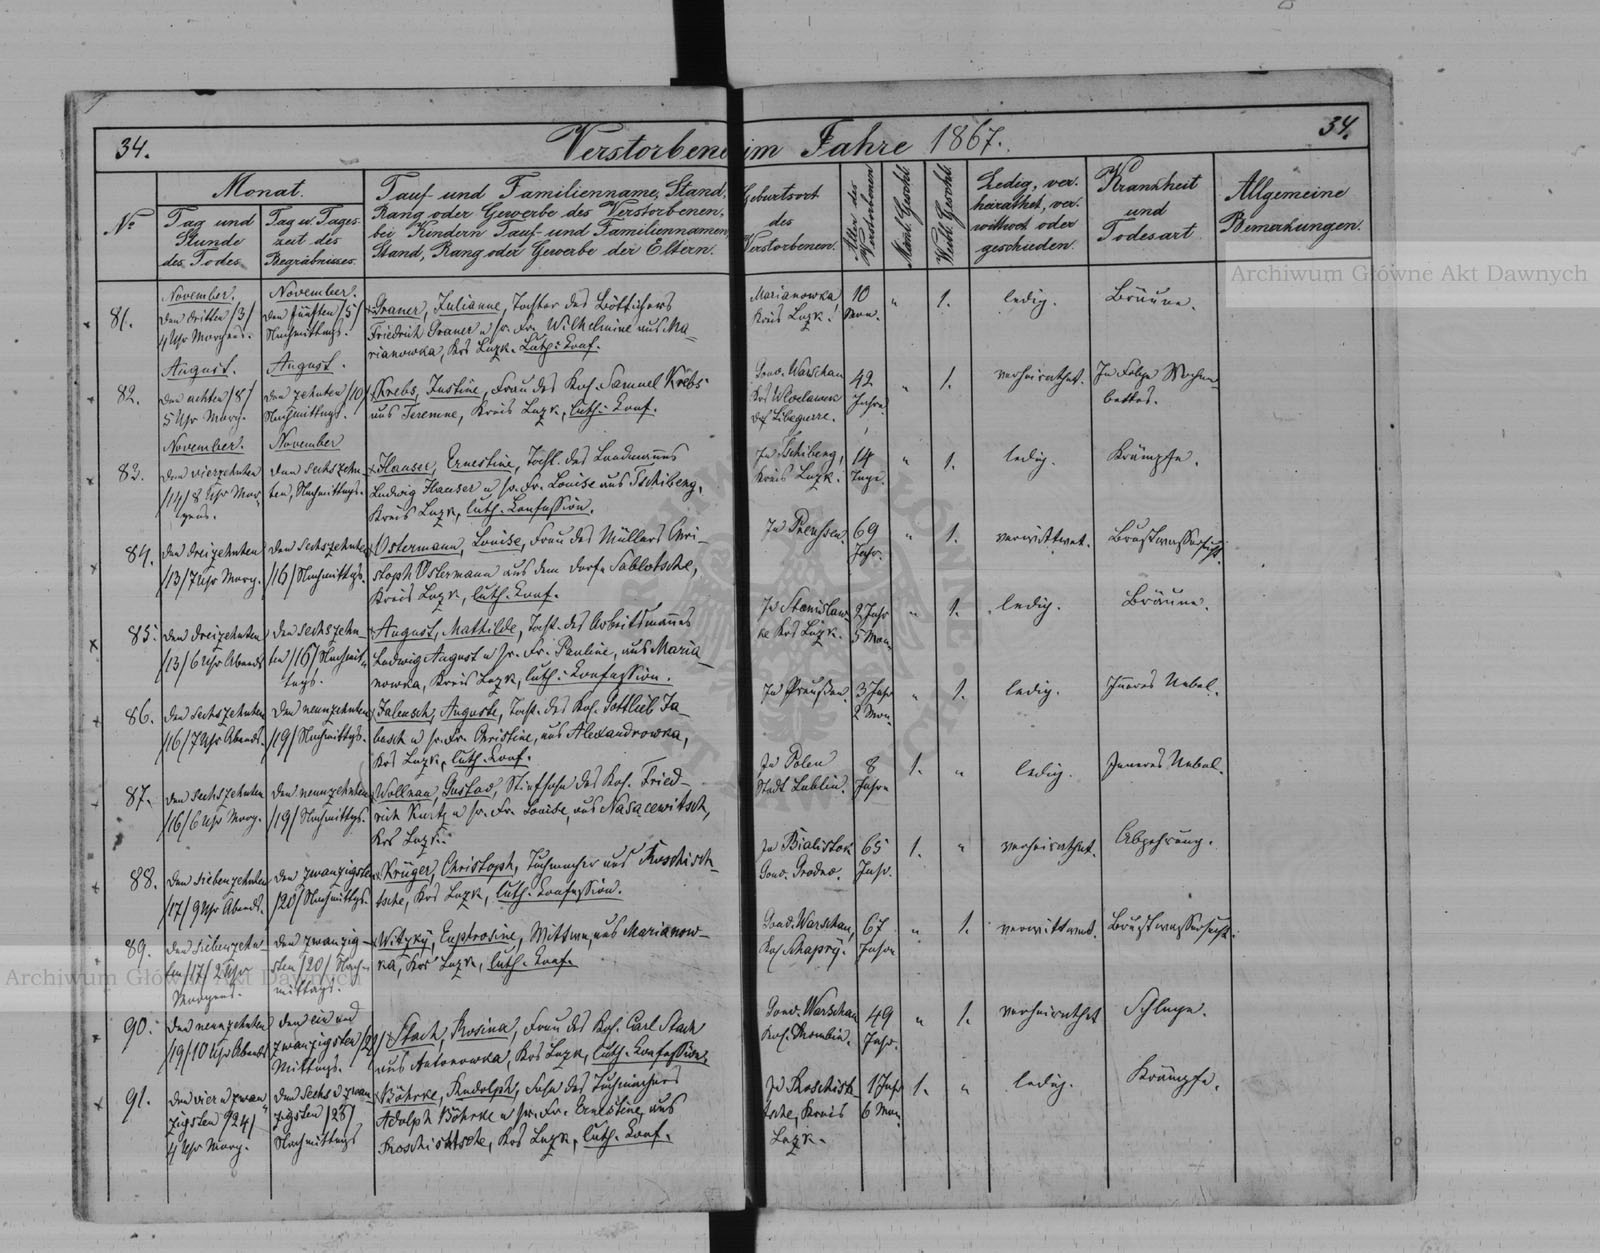 34.
Verstorbene im Jahre 1867.
34.
No
Monat.
Tag und
Stunde
des Todes
Tag u. Tages-
zeit des
Begräbnisses
Tauf- und Familienname, Stand,
Rang oder Gewerbe des Verstorbenen,
bei Kindern Tauf- und Familiennamen,
Stand, Rang oder Gewerbe der Eltern.
Geburtsort
des
Verstorbenen.
Alter des
Verstorbenen
Männl. Geschl.
Weibl. Geschl.
Ledig, ver-
heirathet, ver-
wittwet oder
geschieden.
Krankheit
und
Todesart.
Allgemeine
Bemerkungen.
Archiwum Główne Akt Dawnych
81.
November.
den dritten /3/
4 Uhr Morgens.
November.
den fünften /5/
Nachmittags.
Graner, Julianne, Tochter des Böttichers
Friedrich Graner u sr. Fr. Wilhelmine aus Ma-
rianowka, Krs Luzk. Luth. Conf.
Marianowka,
Kreis Luzk.
10
Mon.
"
1.
ledig.
Bräune.
82.
August.
den achten /8/
5 Uhr Morg.
August.
den zehnten /10/
Nachmittags.
Krebs, Justine, Frau des Kol. Samuel Krebs
aus Teremne, Kreis Luzk, luth. Conf.
Gouv. Warschau
Krs Wloclawek
42
Jahre
"
1.
verheirathet.
In Folge Wochen-
bettes.
83.
November.
den vierzehnten
/14/ 8 Uhr Mor-
gens.
November
den sechszehn-
ten, Nachmittags.
Hauser, Ernestine, Tocht. des Landmannes
Ludwig Hauser u sr. Fr. Louise aus Tschiberg,
Kreis Luzk, luth. Confession.
In Tschiberg,
Kreis Luzk.
14
Tage.
"
1.
ledig.
Krämpfe.
84.
den dreizehnten
/13/ 7 Uhr Morg.
den sechszehnten
/16/ Nachmittags.
Ostermann, Louise, Frau des Müllers Chri-
stoph Ostermann aus dem Dorfe Sablotsche,
Kreis Luzk, luth. Conf.
In Preußen.
69
Jahr.
"
1.
verwittwet.
Brustwassersucht.
85.
den dreizehnten
/13/ 6 Uhr Abends
den sechszehn-
ten /16/ Nachmit-
tags.
August, Mathilde, Tocht. des Arbeitsmannes
Ludwig August u sr. Fr. Pauline, aus Maria-
nowka, Kreis Luzk, luth. Confession.
In Stanislaw-
ke Krs Luzk.
2 Jahr
5 Mon.
"
1.
ledig.
Bräune.
86.
den sechszehnten
/16/ 7 Uhr Abends.
den neunzehnten
/19/ Nachmittags.
Auguste, Tocht. des Kol. Gottlieb
u sr. Fr. Christine, aus Alexandrowka,
Krs Luzk, luth. Conf.
In Preußen.
3 Jahr
2 Mon.
"
1.
ledig.
Inneres Uebel.
87.
den sechszehnten
/16/ 6 Uhr Morg.
den neunzehnten
/19/ Nachmittags.
Wollman, Gustav, Stiefsohn des Kol. Fried-
rich Kurtz u sr. Fr. Louise, aus Nasacewitsch,
Krs Luzk.
In Polen
Stadt Lublin.
8
Jahre
1.
"
ledig.
Inneres Uebel.
88.
den siebenzehnten
/17/ 9 Uhr Abends.
den zwanzigsten
/20/ Nachmittags.
Krüger, Christoph, Tuchmacher aus Roschisch-
tsche, Krs Luzk, luth. Confession.
In Bialistok
Gouv. Grodno.
65
Jahr.
1.
"
verheirathet.
Abzehrung.
89.
den siebenzehn-
ten /17/ 2 Uhr
Morgens.
den zwanzig-
sten /20/ Nach-
mittags.
Witzky, Euphrosine, Wittwe, aus Marianow-
ka, Krs Luzk, luth. Conf.
Gouv. Warschau,
Kol. Schapry.
67
Jahre
"
1.
verwittwet.
Brustwassersucht.
Archiwum Główne Akt Dawnych
90.
den neunzehnten
/19/ 10 Uhr Abends
den ein und
zwanzigsten /21/
Mittags.
Stach, Rosina, Frau des Kol. Carl Stach
aus Antonowka, Krs Luzk, luth. Confession.
Gouv. Warschau
Kol.
49
Jahr.
"
1.
verheirathet
Schlage.
91.
den vier u zwan
zigsten /24/
4 Uhr Morg.
den sechs u zwan
zigsten /26/
Nachmittags
Böhrke, Rudolph, Sohn des Tuchmachers
Adolph Böhrke u sr. Fr. Ernestine, aus
Roschischtsche, Krs Luzk, luth. Conf.
In Roschisch-
tsche, Kreis
Luzk.
1 Jahr
6 Mon.
1.
"
ledig.
Krämpfe.